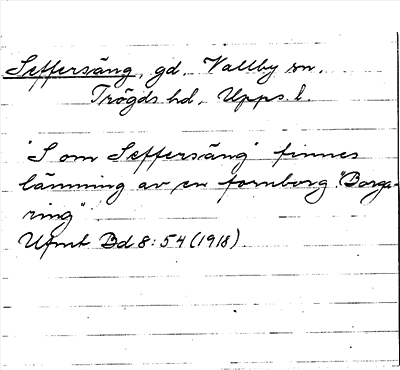 Seffersäng, gd, Vallby sn.
Trögds hd, Upps. l.
"S om Seffersäng" finnes
lämning av en fornborg "Borga-
ring"
Ufmt Bd 8: 54 (1918)